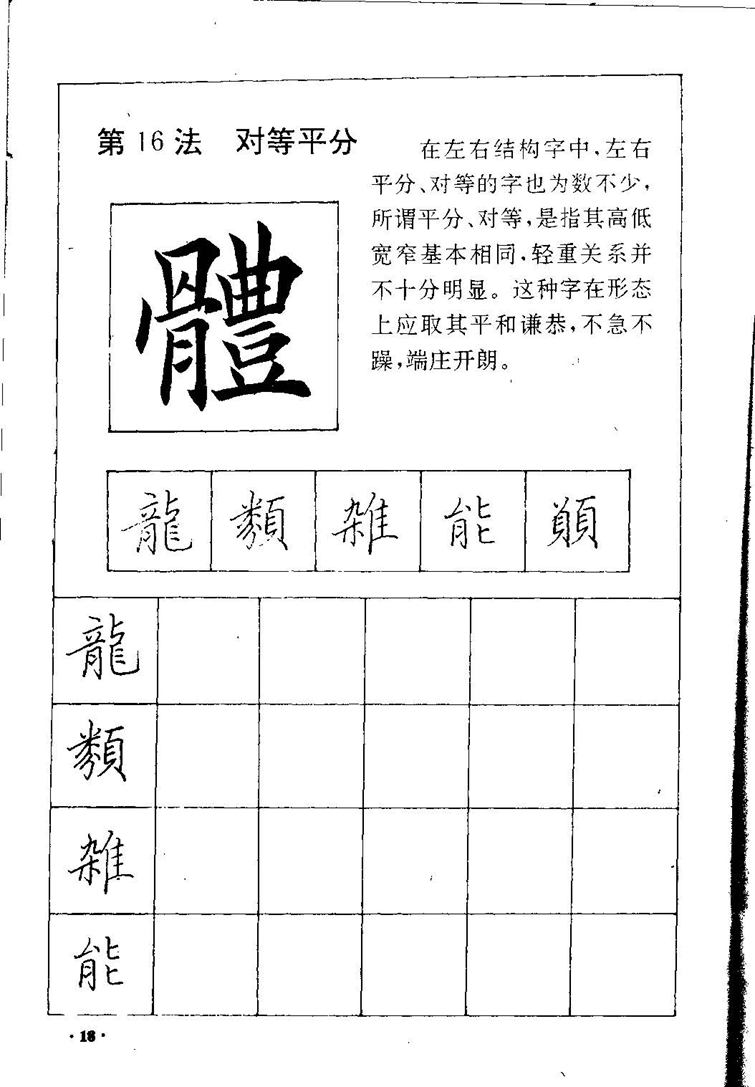 第16法 对等平分
在左右结构字中,左右
平分、对等的字也为数不少,
所谓平分、对等,是指其高低
宽窄基本相同,轻重关系并
不十分明显。这种字在形态
上应取其平和谦恭,不急不
躁,端庄开朗。
體
龍 類 雑 能 顛
龍
類
雑
能
·18·